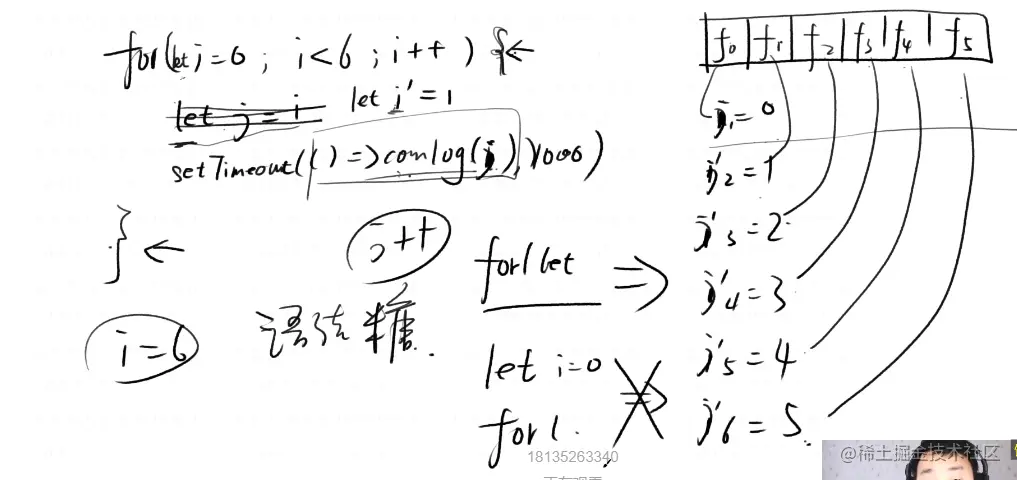 for(let i=0 ; i<6 ; i++) {←
let j = i let i' = 1
setTimeout(() => comlog(i), 1000)
} ←
i++
i=6
语法糖.
for(let ⇒
let i=0
for(. ⇒
f0 f1 f2 f3 f4 f5
i1 = 0
i'2 = 1
i'3 = 2
i'4 = 3
i'5 = 4
i'6 = 5
18135263340
正在观看
@稀土掘金技术社区